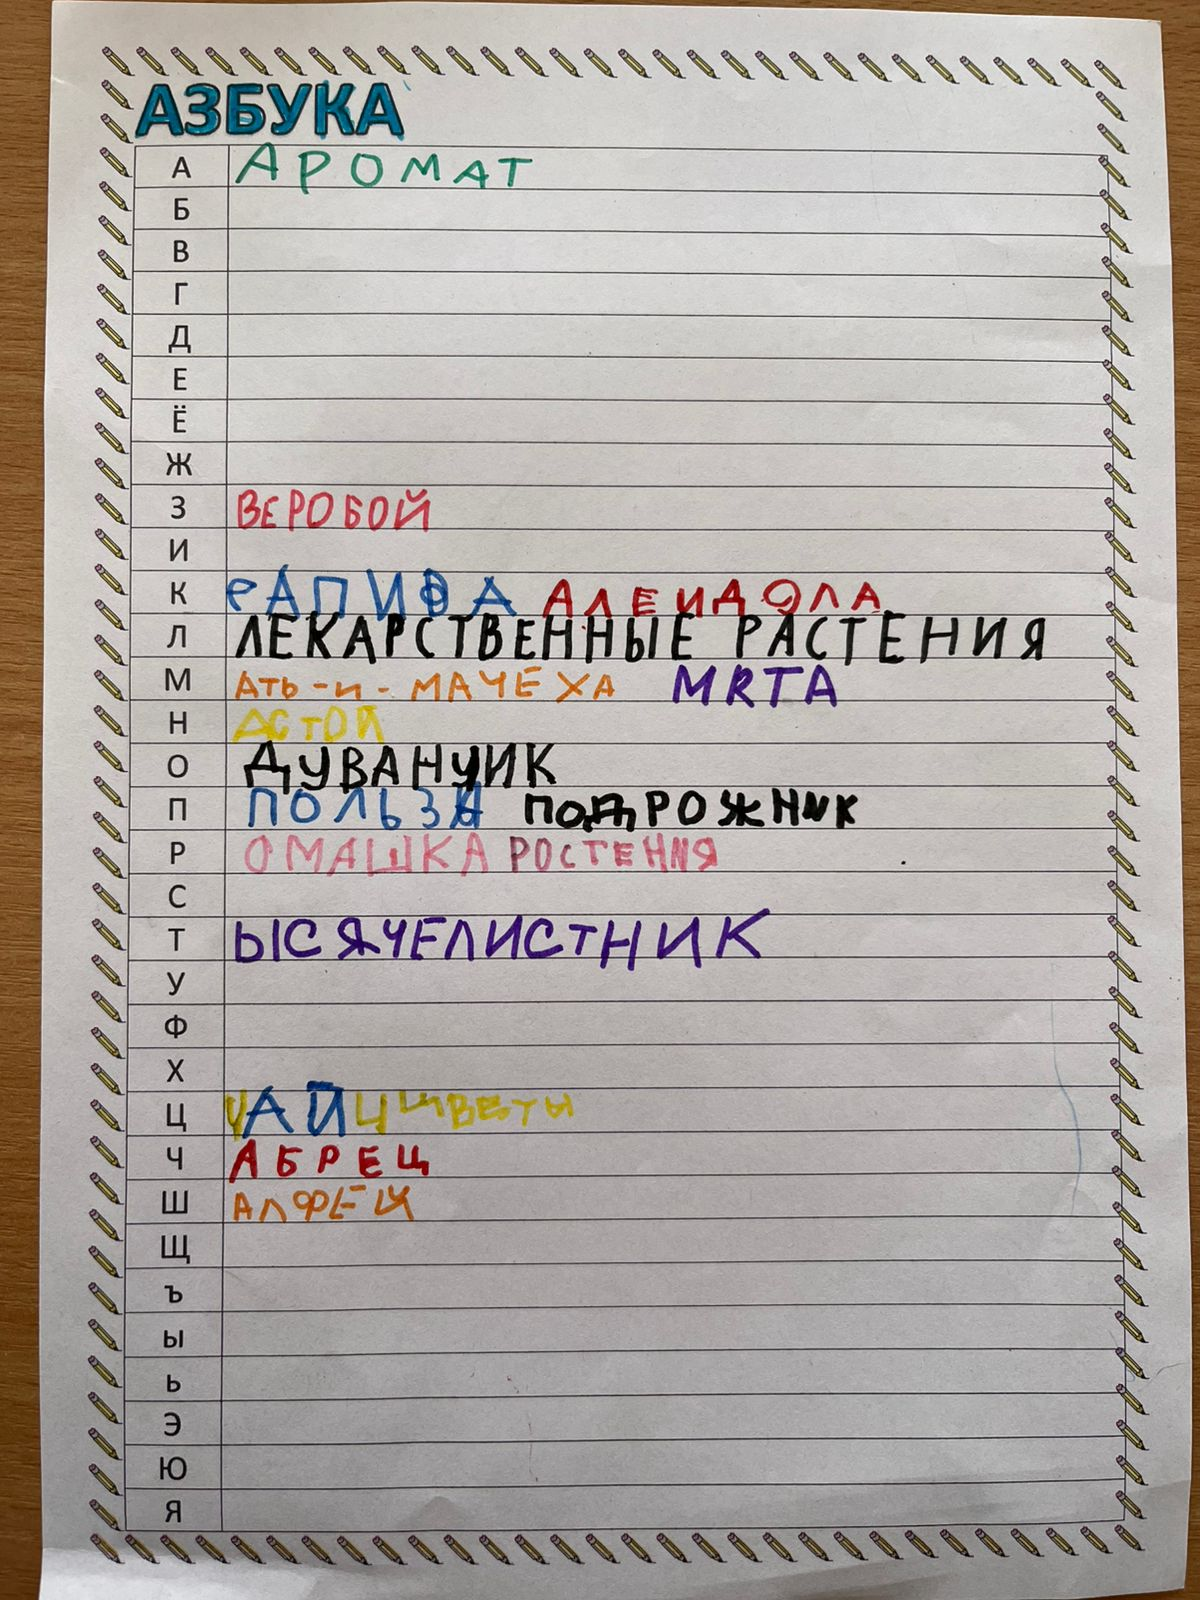 АЗБУКА
А АРОМАТ
Б
В
Г
Д
Е
Ё
Ж
З ВЕРОБОЙ
И
К РАПИВА АЛЕИДОЛА
Л ЛЕКАРСТВЕННЫЕ РАСТЕНИЯ
М АТЬ-И-МАЧЕХА МЯТА
Н АСТОЙ
О ДУВАНЧИК
П ПОЛЬЗА ПОДРОЖНИК
Р ОМАШКА РОСТЕНИЯ
С
Т ЫСЯЧЕЛИСТНИК
У
Ф
Х
Ц ЧАЙ ЦВЕТЫ
Ч АБРЕЦ
Ш АЛФЕЙ
Щ
Ъ
Ы
Ь
Э
Ю
Я